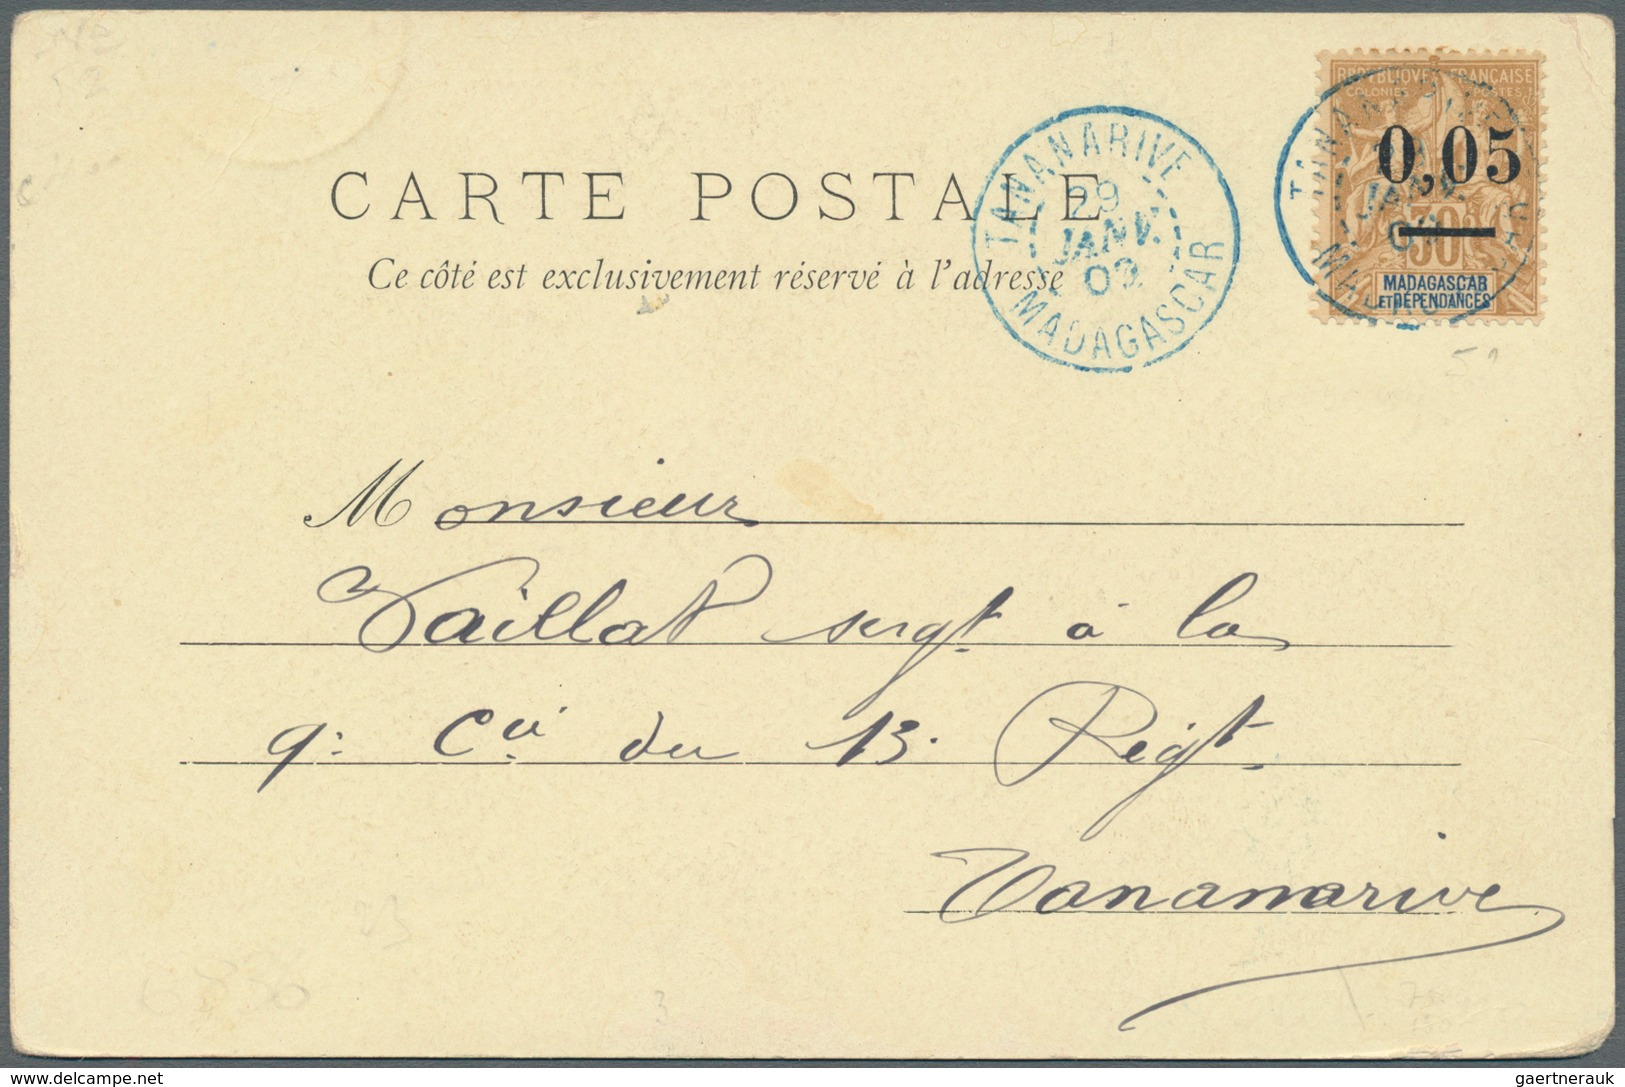 RÉPUBLIQUE FRANÇAISE
COLONIES POSTES
0,05
30c
MADAGASCAR
ET DÉPENDANCES
TANANARIVE
29
JANV.
02
MADAGASCAR
CARTE POSTALE
Ce côté est exclusivement réservé à l'adresse
Monsieur
Vaillat sergt à la
9e Cie du 13e Régt
Tananarive
6830
3
delcampe.net
gaertnerauk